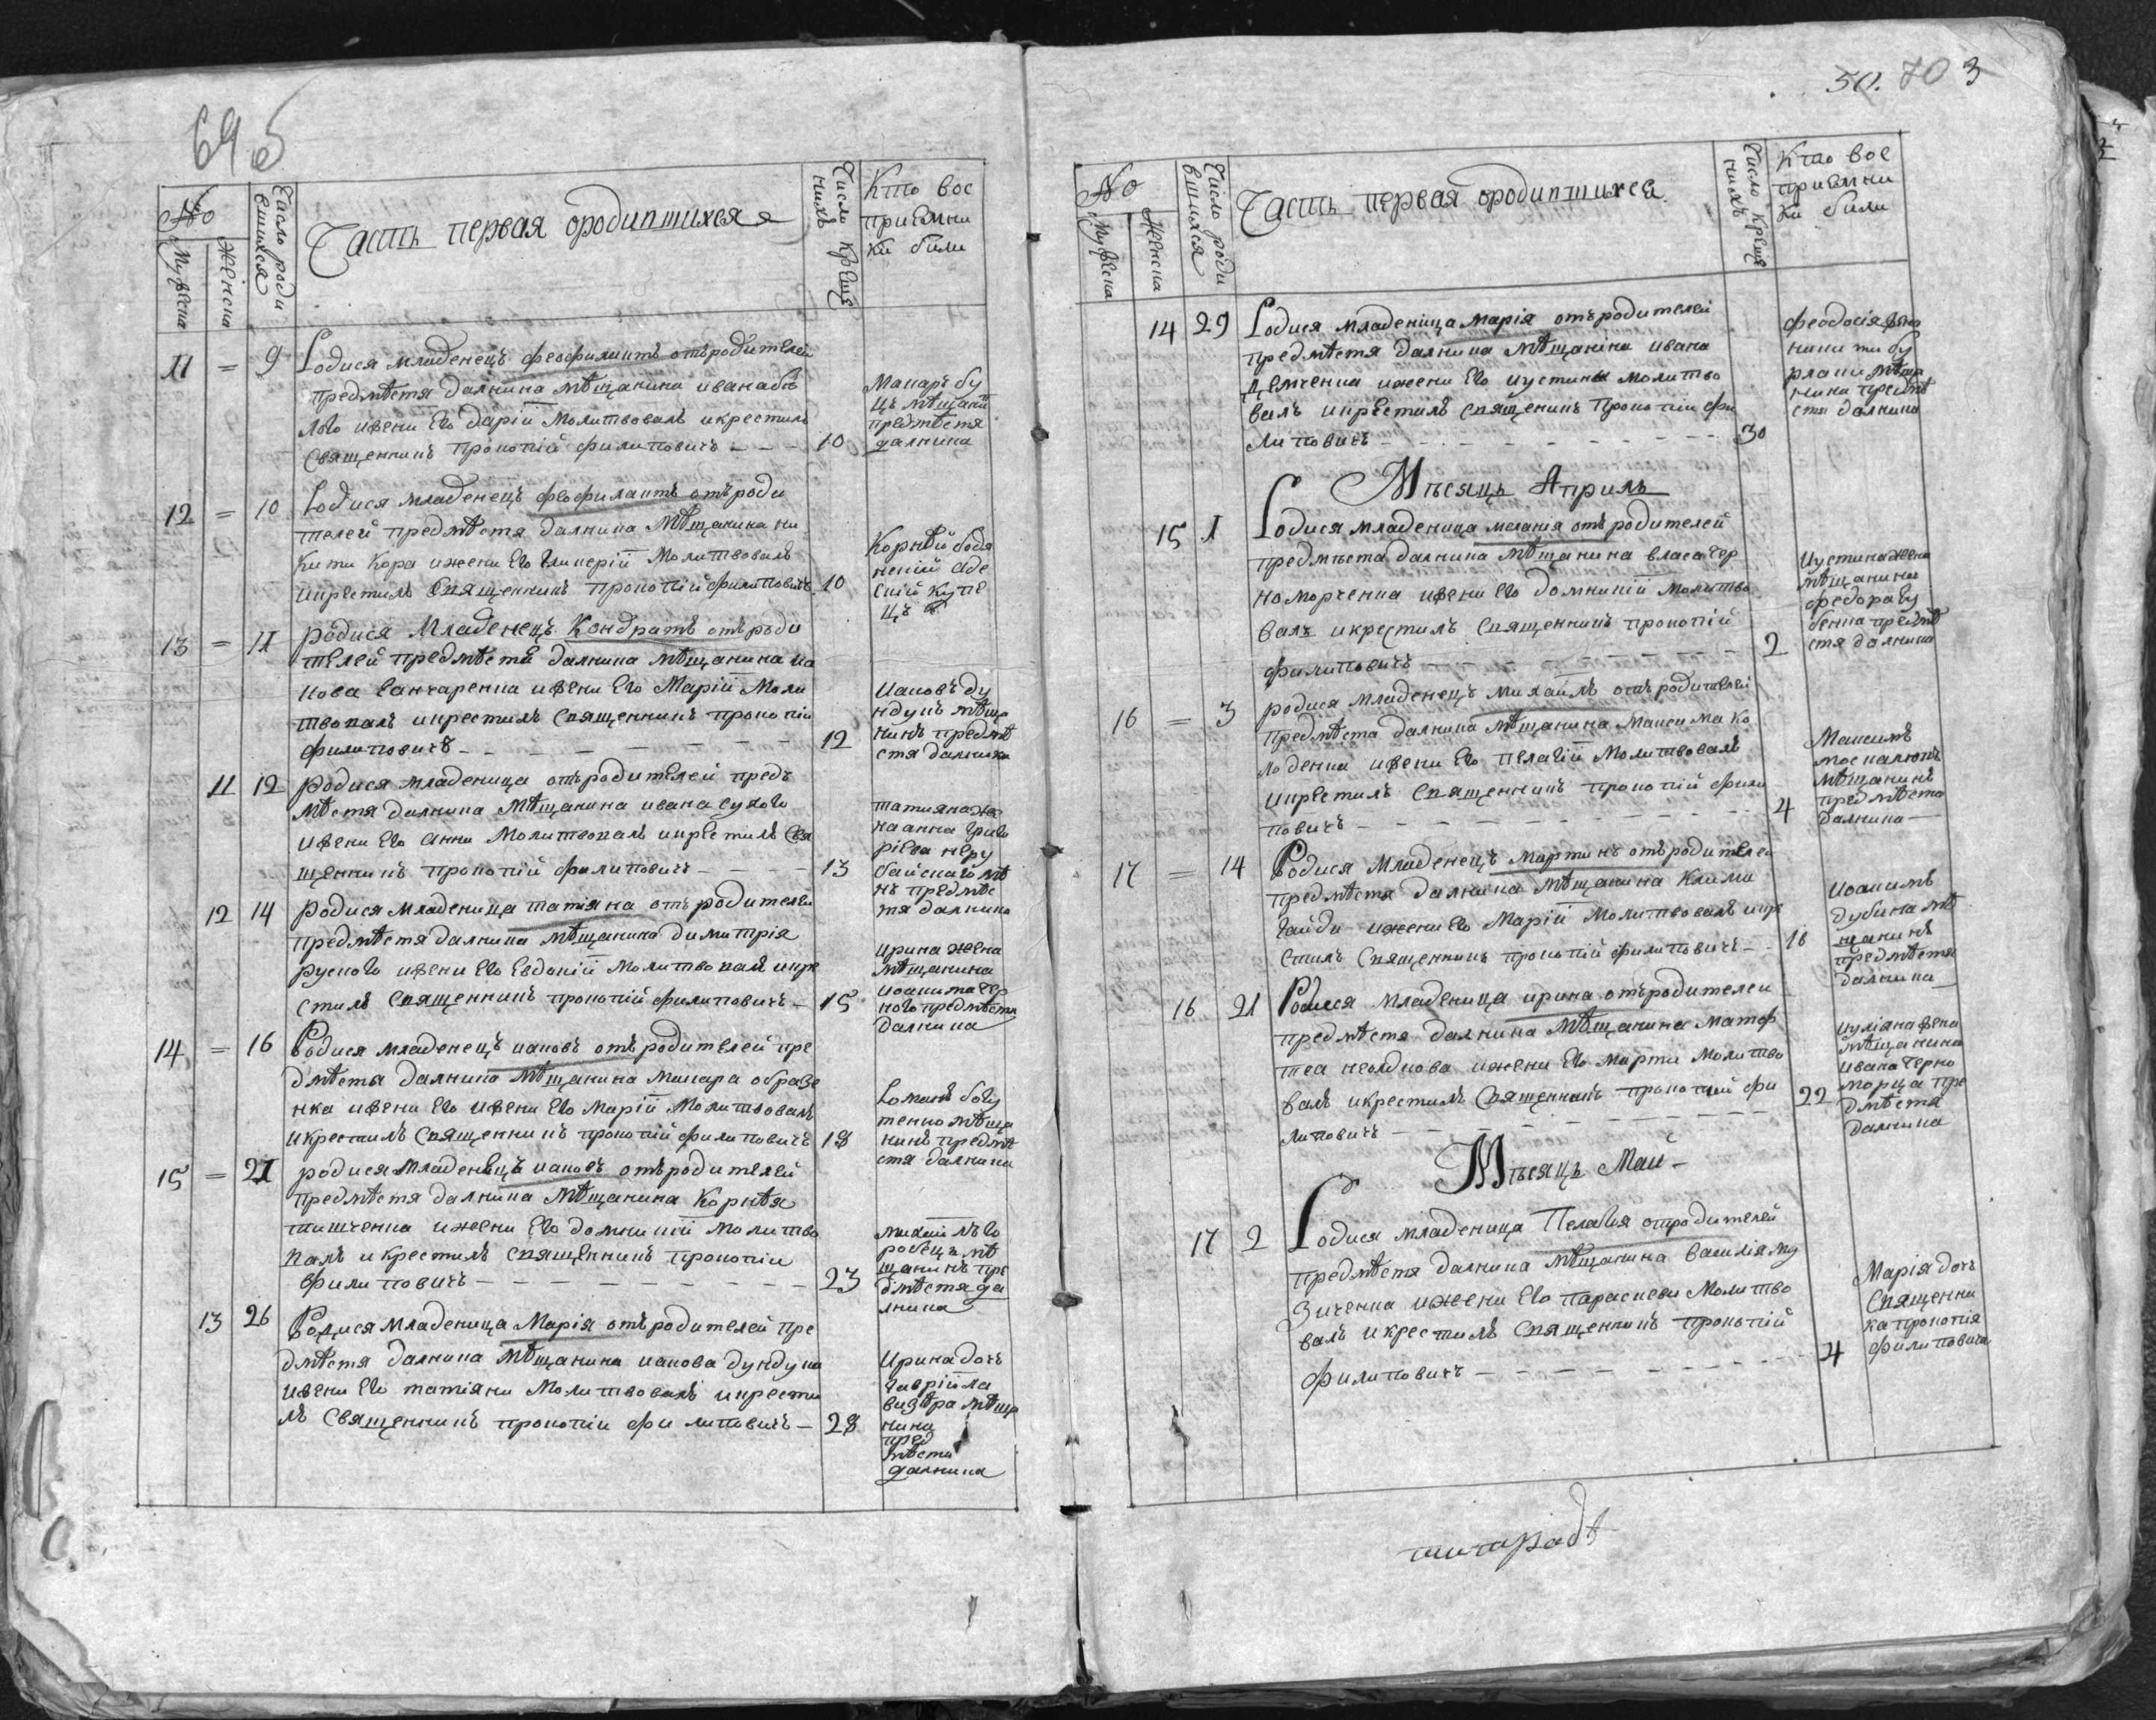 69 б
No
Мужеска
Женска
Число роди
вшихся
Часть первая ородившихся
Число креще
нихъ
Кто вос
приемни
ки были
11 = 9 Родися младенецъ феофилактъ отъ родителей
предмѣстя далника мѣщанина ивана бѣ
лого ижени Его дарій Молитвовалъ икрестилъ
Священникъ прокопій филиповичъ - - - 10
Макаръ бу
цъ мѣщани
предмѣстя
далника
12 = 10 Родися младенецъ феофилактъ отъ роди
телей предмѣстя далника Мѣщанина ни
кити Кора ижени Его Гликерій Молитвовалъ
икрестилъ Священникъ прокопій филиповичъ 10
Корнѣй бодя
нскій Аде
скій купе
цъ
13 = 11 родися Младенецъ Кондратъ отъ роди
телей предмѣстя далника мѣщанина иа
кова Ганчаренка ижени Его Марій Моли
твовалъ икрестилъ Священникъ прокопій
филиповичъ - - - - - - - 12
Иаковъ ду
ндукъ мѣща
нинъ предмѣ
стя далника
11 12 родися младеница отъ родителей предъ
мѣстя далника Мѣщанина ивана сухого
ижени Его Анни Молитвовалъ икрестилъ Свя
щенникъ прокопій филиповичъ - - - - 13
татияна же
на анна григо
ріева
байскаго мѣ
нъ предмѣс
тя далника
12 14 родися младеница татіяна отъ родителей
предмѣстя далника мѣщанина димитрія
руского ижени Его Евдокій Молитвовалъ икре
стилъ Священникъ прокопій филиповичъ - 15
ирина жена
Мѣщанина
иоакима чер
ного предмѣстя
далника
14 = 16 Родися младенецъ иаковъ отъ родителей пре
дмѣстя далника Мѣщанина Макара образе
нка ижени Его ижени Его Марій Молитвовалъ
икрестилъ Священникъ прокопій филиповичъ 18
Романъ богу
тенко мѣща
нинъ предмѣ
стя далника
15 = 21 родися младенецъ иаковъ отъ родителей
предмѣстя далника Мѣщанина Корнѣя
тищенка ижени Его домникій молитво
валъ икрестилъ священникъ прокопій
филиповичъ - - - - - - - - - 23
михаилъ го
робецъ мѣ
щанинъ пре
дмѣстя да
лника
13 26 Родися младеница Марія отъ родителей пре
дмѣстя далника Мѣщанина иакова дундука
ижени Его татіяни Молитвовалъ икрести
лъ Священникъ прокопій филиповичъ - 28
Ирина дочъ
гавріила
мѣща
нина
пред
мѣстя
далника
50. 70 3
No
Мужеска
Женска
Число роди
вшихся
Часть первая ородившихся
Число креще
нихъ
Кто вос
приемни
ки били
14 29 Родися младеница Марія отъ родителей
предмѣстя далника Мѣщанина ивана
демченка ижени Его иустини молитво
валъ икрестилъ священикъ Прокопій фи
липовичъ - - - - - - - - - 30
феодосія
рлаки мѣща
нина предмѣ
стя далника
Мѣсяцъ Априль
15 1 Родися младеница меланія отъ родителей
предмѣста далника мѣщанина власа чер
номорченка ижени Его домникій молитво
валъ икрестилъ священникъ прокопій
филиповичъ - - - - - - - - 2
Иустина жена
мѣщанина
федора гу
бенка предмѣ
стя далника
16 = 3 родися младенецъ михаилъ отъ родителей
предмѣста далника мѣщанина Максима ко
лоденка ижени Его пелагій Молитвовалъ
икрестилъ священникъ прокопій фили
повичъ - - - - - - - - - 4
Максимъ
москалюкъ
мѣщанинъ
предмѣста
далника
17 = 14 Родися младенецъ мартинъ отъ родителей
предмѣстя далника мѣщанина Клими
гайди ижени Его Марій Молитвовалъ икре
стилъ священникъ прокопій филиповичъ - - 16
Иоакимъ
дубина мѣ
щанинъ
предмѣстя
далника
16 21 Родися младеница ирина отъ родителей
предмѣстя далника Мѣщанина матф
теа ижени Его марти Молитво
валъ икрестилъ Священникъ прокопій фи
липовичъ - - - - - - - - 22
иуліяна жена
мѣщанина
ивана черно
морца пре
дмѣстя
далника
Мѣсяцъ Май
17 2 Родися младеница Пелагія отродителей
предмѣстя далника мѣщанина василія му
зиченка ижени Его параскеви Молитво
валъ икрестилъ Священникъ прокопій
филиповичъ - - - - - - - - 4
Марія дочъ
Священни
ка прокопія
филиповича